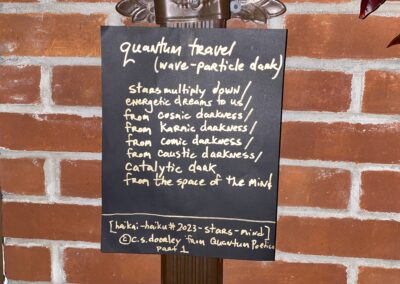 quantum travel
(wave-particle dark)
stars multiply down/
energetic dreams to us/
from cosmic darkness/
from karmic darkness/
from comic darkness/
from caustic darkness/
catalytic dark
from the space of the mind
[haikai-haiku#2023-stars-mind]
©c.s.doorley from Quantum Poetics
part 1